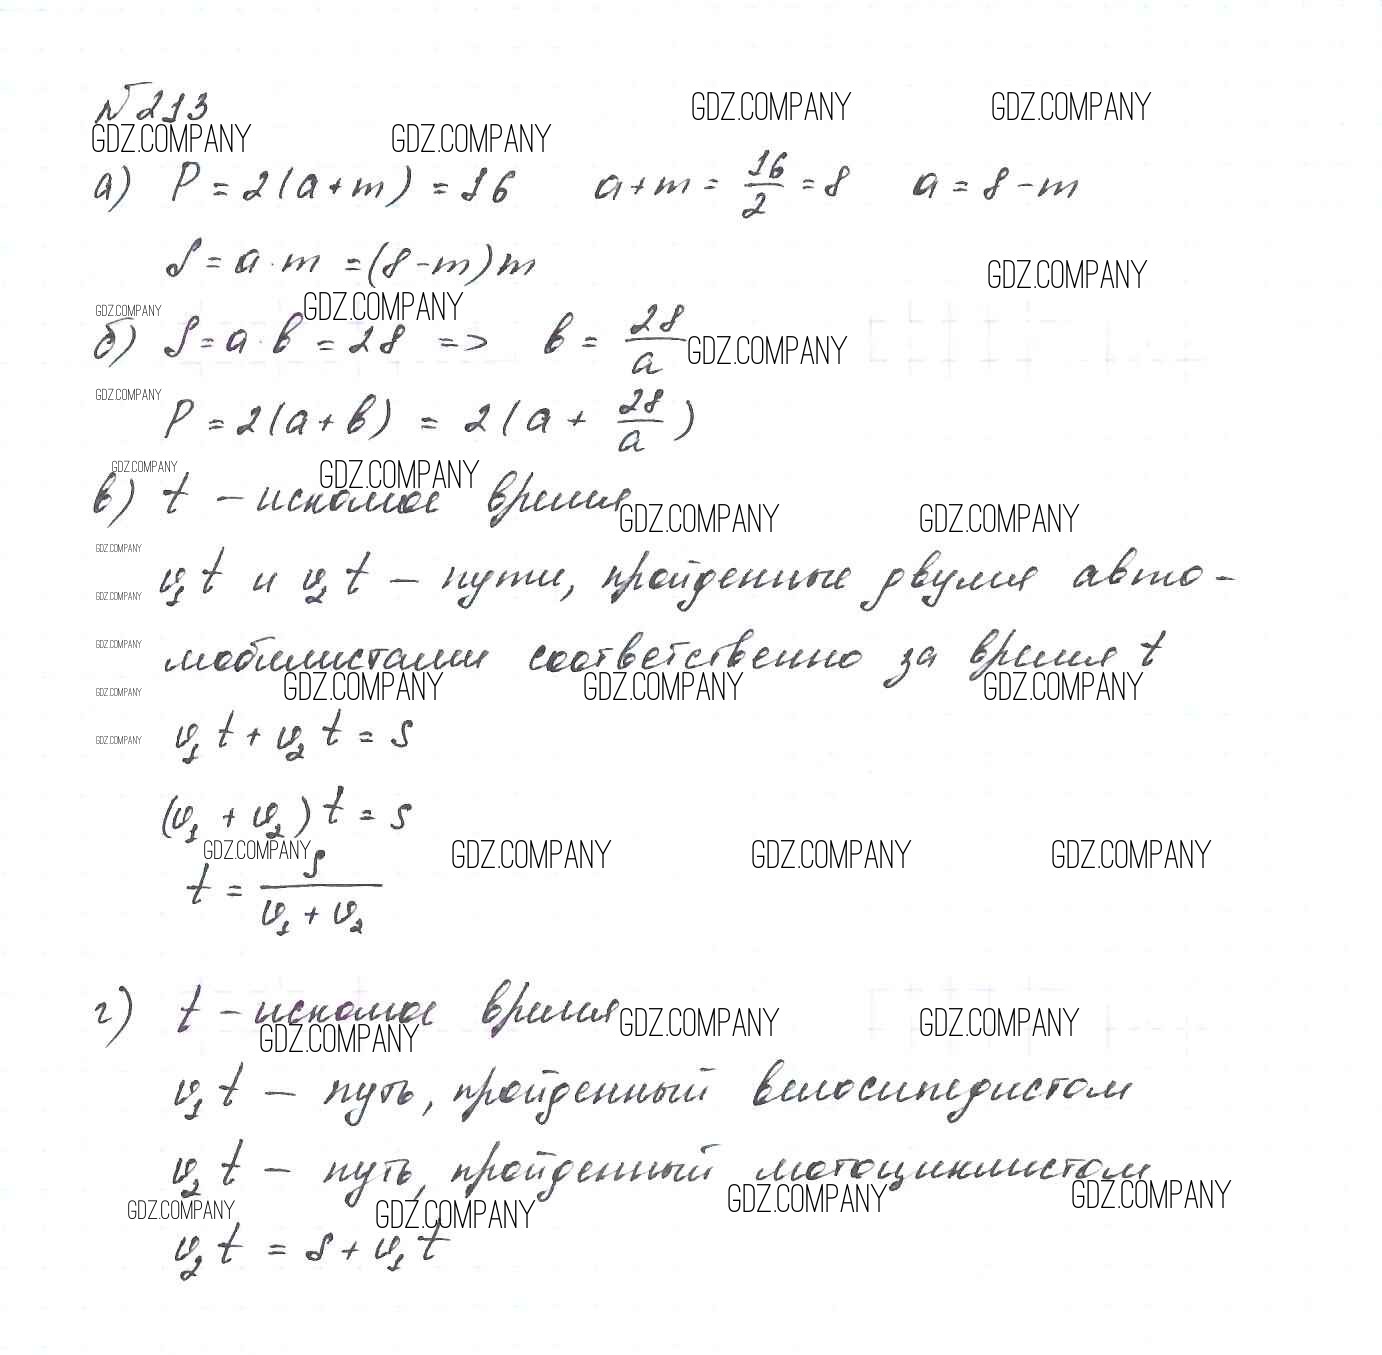 №213
GDZ.COMPANY GDZ.COMPANY GDZ.COMPANY GDZ.COMPANY
а) P = 2(a+m) = 16 a+m = 16/2 = 8 a = 8-m
S = a·m = (8-m)m
GDZ.COMPANY
GDZ.COMPANY GDZ.COMPANY
б) S = a·b = 28 => b = 28/a
GDZ.COMPANY
GDZ.COMPANY
P = 2(a+b) = 2(a + 28/a)
GDZ.COMPANY GDZ.COMPANY
в) t - искомое время
GDZ.COMPANY GDZ.COMPANY
GDZ.COMPANY
v₁t и v₂t - пути, пройденные двумя авто-
GDZ.COMPANY
GDZ.COMPANY
мобилистами соответственно за время t
GDZ.COMPANY GDZ.COMPANY GDZ.COMPANY GDZ.COMPANY
v₁t + v₂t = s
GDZ.COMPANY
(v₁ + v₂)t = s
GDZ.COMPANY GDZ.COMPANY GDZ.COMPANY GDZ.COMPANY
t = s/(v₁ + v₂)
г) t - искомое время
GDZ.COMPANY GDZ.COMPANY GDZ.COMPANY
v₁t - путь, пройденный велосипедистом
v₂t - путь, пройденный мотоциклистом
GDZ.COMPANY GDZ.COMPANY GDZ.COMPANY GDZ.COMPANY
v₂t = s + v₁t